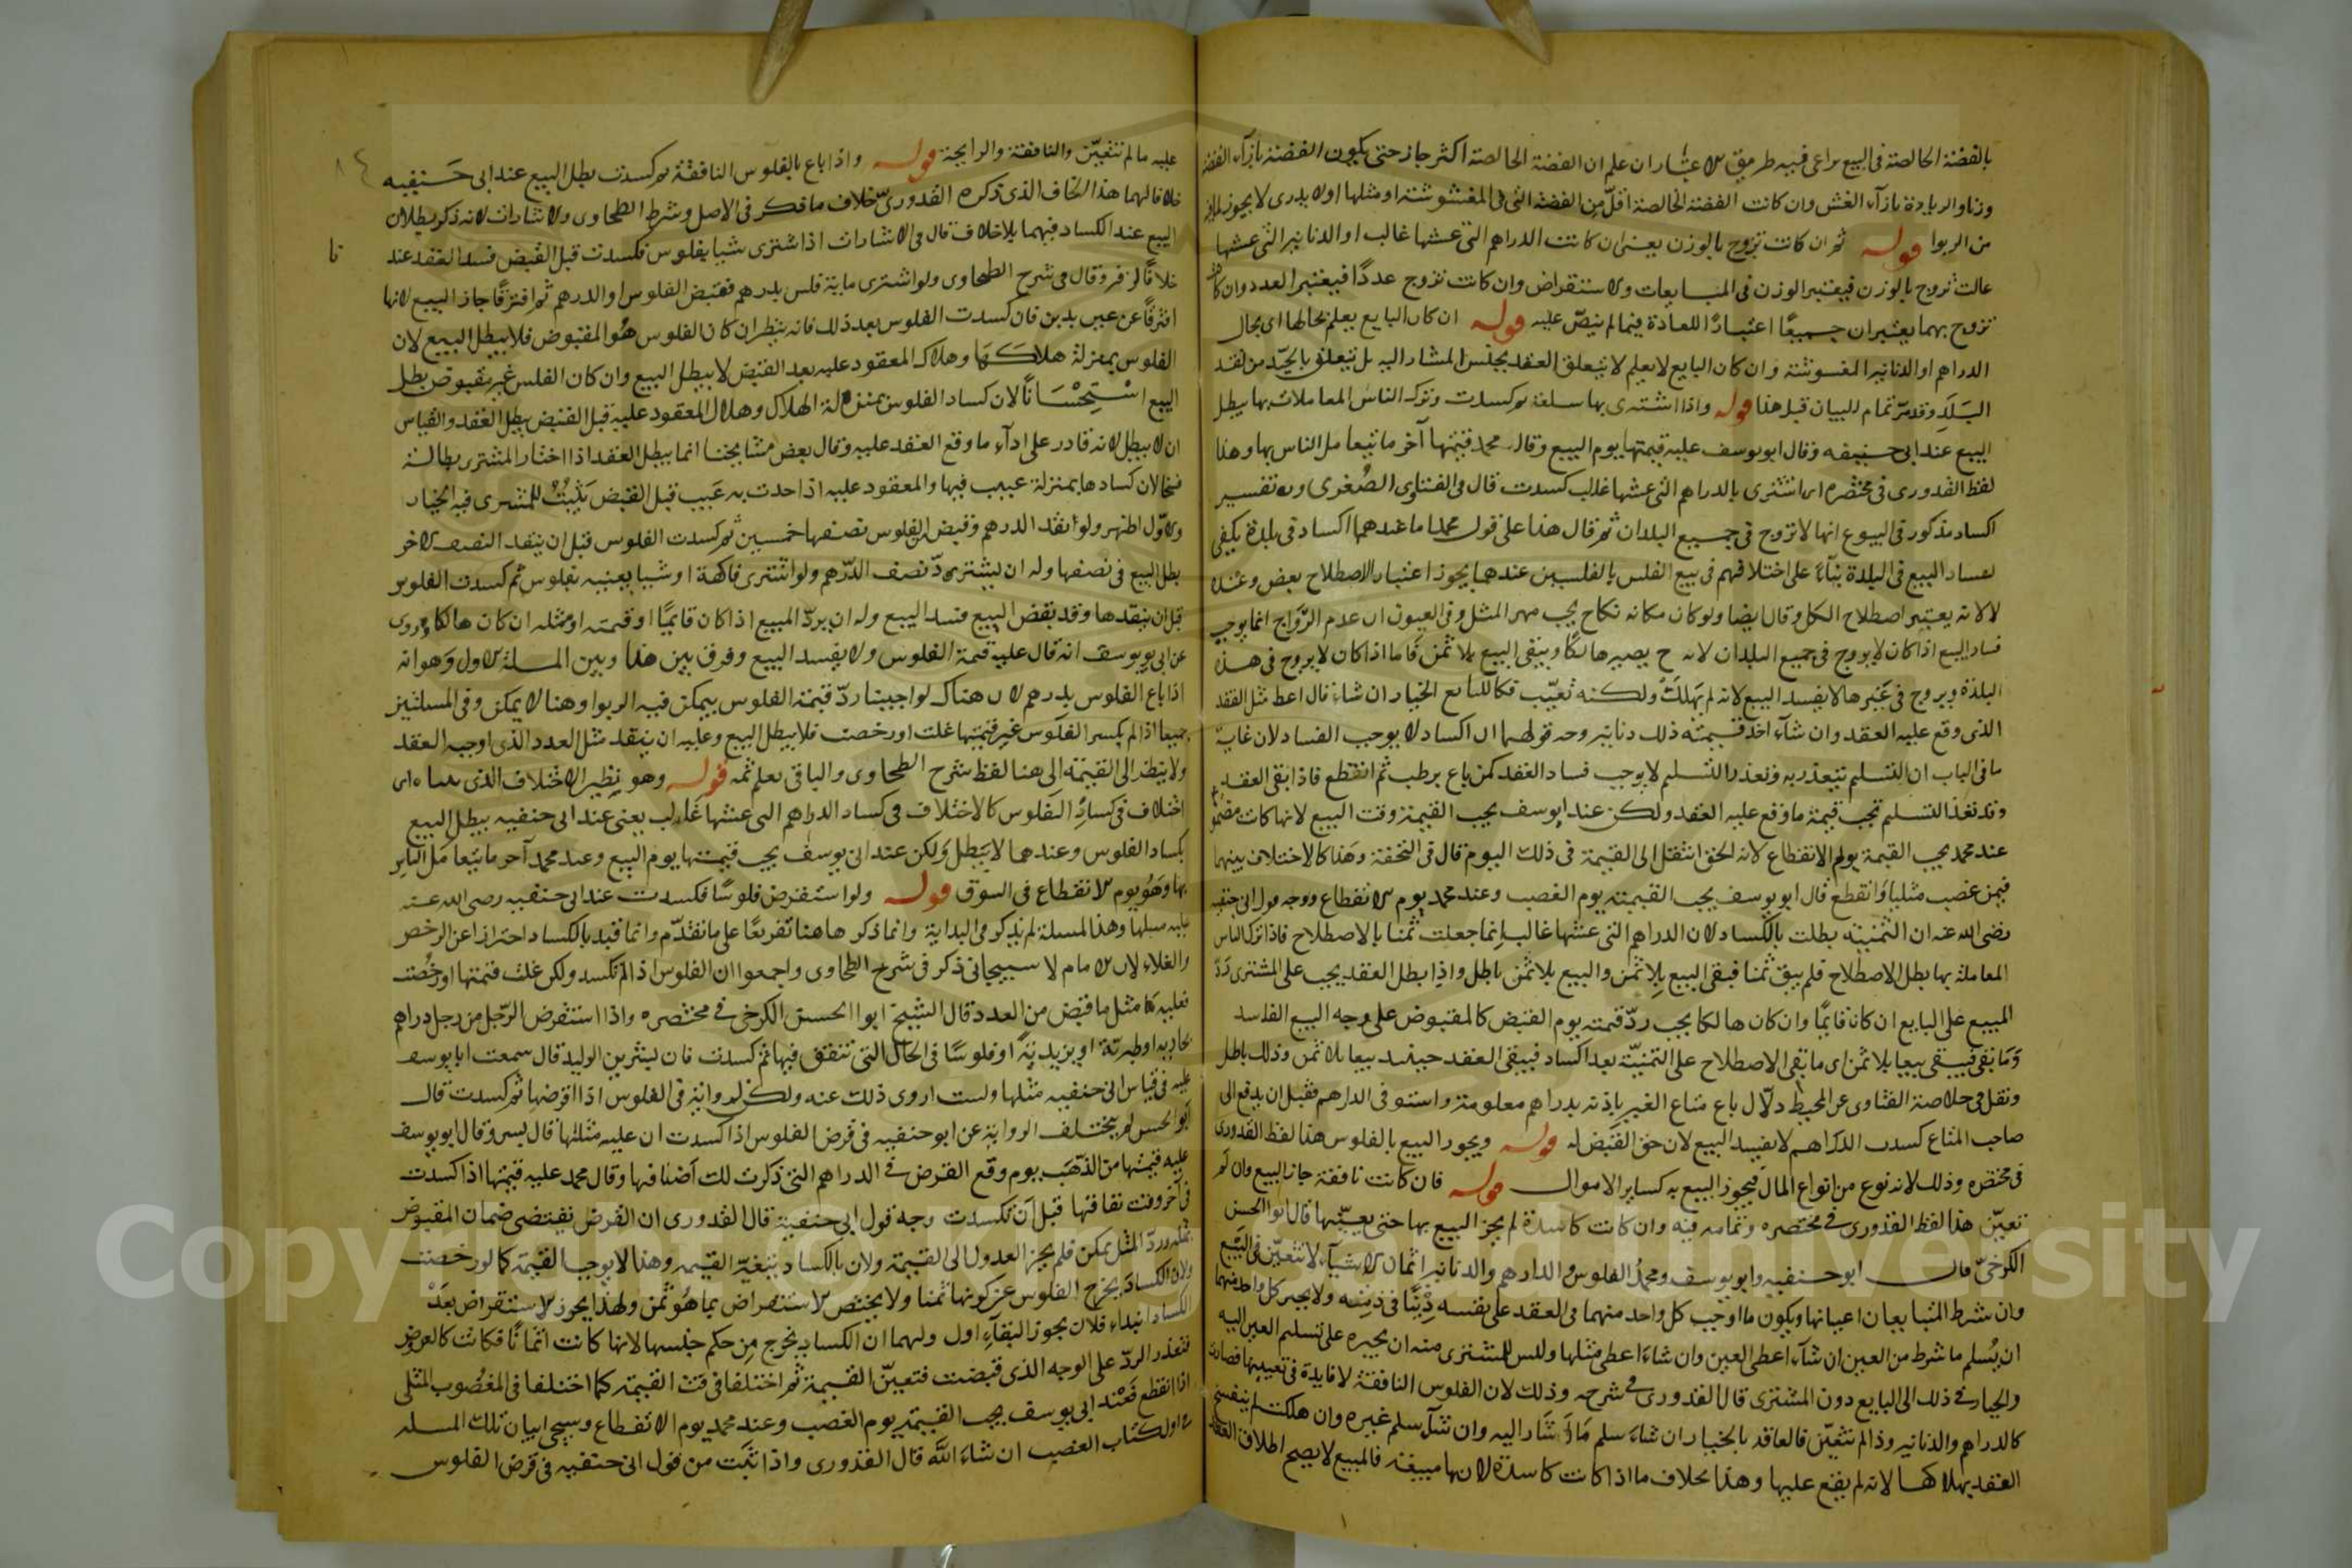 بالفضة الخالصة فى البيع يراعى فيه طريق الاعتبار ان علم ان الفضة الخالصة اكثر جاز حتى يكون الفضة بازآء الفضة
وزنا والزيادة بازآء الغش وان كانت الفضة الخالصة اقل من الفضة التى فى المغشوشة او مثلها اولا يدرى لا يجوز
من الربوا قوله ثم ان كانت تروج بالوزن يعنى ان كانت الدراهم التى غشها غالب او الدنانير التى غشها
غالب تروج بالوزن فيعتبر الوزن فى المبايعات والاستقراض وان كانت تروج عددًا فيعتبر العدد وان كانت
تروج بهما يعتبران جميعًا اعتبارًا للعادة فيما لم ينص عليه قوله ان كان البايع يعلم بحالها اى بحال
الدراهم او الدنانير المغشوشة وان كان البايع لا يعلم لا يتعلق العقد بجنس المشار اليه بل يتعلق بالجيد من نقد
البلد وقد مر تمام البيان قبل هذا قوله واذا اشترى بها سلعة ثم كسدت وترك الناس المعاملات بها يبطل
البيع عند ابى حنيفه وقال ابو يوسف عليه قيمتها يوم البيع وقال محمد قيمتها آخر ما تتعامل الناس بها وهذا
لفظ القدورى فى مختصره اى اشترى بالدراهم التى غشها غالب كسدت قال فى الفتاوى الصغرى وبه تفسير
اكساد مذكور فى البيوع انها لا تروج فى جميع البلدان ثم قال هذا على قول محمد اما عندهما اكساد فى بلدة يكفى
لفساد البيع فى البلدة بنآء على اختلافهم فى بيع الفلس بالفلسين عندهما يجوز اعتبار الاصطلاح بعض وعنده
لا لانه يعتبر اصطلاح الكل وقال ايضا ولو كان مكانه نكاح يجب مهر المثل وفى العيون ان عدم الرواج انما يوجب
فساد البيع اذا كان لا يروج فى جميع البلدان لانه ح يصير هالكًا ويبقى البيع بلا ثمن فاما اذا كان لا يروج فى هذه
البلدة ويروج فى غيرها لا يفسد البيع لانه لم يهلك ولكنه تعيب فكا للبايع الخيار ان شاء قال اعط مثل النقد
الذى وقع عليه العقد وان شآء اخذ قيمته ذلك دنانير وجه قولهما ان اكساد لا يوجب الفساد لان غاية
ما فى الباب ان التسليم يتعذر به وتعذر التسليم لا يوجب فساد العقد كمن باع برطب ثم انقطع فاذا بقى العقد
وقد تعذ التسليم تجب قيمة ما وقع عليه العقد ولكن عند ابو يوسف يجب القيمة وقت البيع لانها كانت
عند محمد يجب القيمة يوم الانقطاع لانه الحق انتقل الى القيمة فى ذلك اليوم قال فى التحفة وهذا كالاختلاف بينهما
فيمن غصب مثليا وانقطع قال ابو يوسف يجب القيمته يوم الغصب وعند محمد يوم الانقطاع ووجه قول ابى
رضى الله عنه ان الثمنيته بطلت بالكساد لان الدراهم التى غشها غالب انما جعلت ثمنا بالاصطلاح فاذا ترك الناس
المعاملة بها بطل الاصطلاح فلم يبق ثمنا فبقى البيع بلا ثمن والبيع بلا ثمن باطل واذا بطل العقد يجب على المشترى رد
المبيع على البايع ان كانا قايمًا وان كان هالكا يجب رد قيمته يوم القبض كالمقبوض على وجه البيع الفاسد
وما بقى فيبقى بيعا بلا ثمن اى ما بقى الاصطلاح على الثمنية بعد اكساد فيبقى العقد حينئذ بيعا بلا ثمن وذلك باطل
ونقل فى خلاصة الفتاوى عن المحيط دلال باع متاع الغير باذنه بدراهم معلومة واستوفى الدارهم فقبل ان يدفع الى
صاحب المتاع كسدت الدراهم لا يفسد البيع لان حق القبض له قوله ويجوز البيع بالفلوس هذا لفظ القدورى
فى مختصره وذلك لانه نوع من انواع المال فيجوز البيع به كساير الاموال قوله فان كانت نافقة جاز البيع وان لم
تعين هذا لفظ القدورى فى مختصره وتمامه فيه وان كانت كاسدة لم يجز البيع بها حتى يعينها قال ابو الحسن
الكرخى قال ابو حنيفه وابو يوسف ومحمد الفلوس والدارهم والدنانير اثمان الاشيآء لا تتعين فى البيع
وان شرط المتبايعان اعيانها ويكون ما اوجب كل واحد منهما فى العقد على نفسه دينًا فى ذمته ولا يجبر كل واحد منهما
ان يسلم ما شرط من العين ان شآء اعطى العين وان شاء اعطى مثلها وليس للمشترى منه ان يجبره على تسليم العين اليه
والخيار فى ذلك الى البايع دون المشترى قال القدورى فى شرحه وذلك لان الفلوس النافقة لا فايدة فى تعيينها فصارت
كالدراهم والدنانير وذا لم تتعين فالعاقد بالخيار ان شاء سلم ما اشار اليه وان شآء سلم غيره وان هلكت لم ينفسخ
العقد بهلاكها لانه لم يقع عليها وهذا بخلاف ما اذا كانت كاسدة لانها مبيعة فالمبيع لا يصح اطلاق العقد
عليه ما لم تتعين والنافقة والرايجة قوله واذا باع بالفلوس النافقة ثم كسدت بطل البيع عند ابى حنيفه
خلافا لهما هذا الخلاف الذى ذكره القدورى خلاف ما ذكر فى الاصل وشرط الطحاوى والاشارات لانه ذكر بطلان
البيع عند الكساد فيهما بلا خلاف قال فى الاشارات اذا اشترى شيا بفلوس فكسدت قبل القبض فسد العقد عند
خلافا لزفر وقال فى شرح الطحاوى ولو اشترى ماية فلس بدرهم فقبض الفلوس او الدرهم ثم افترقًا جاز البيع لانها
افترقا عن عين بدين فان كسدت الفلوس بعد ذلك فانه ينظر ان كان الفلوس هو المقبوض فلا يبطل البيع لان
الفلوس بمنزلة هلاكها وهلاك المعقود عليه بعد القبض لا يبطل البيع وان كان الفلس غير مقبوض بطل
البيع استحسانًا لان كساد الفلوس بمنزلة الهلاك وهلال المعقود عليه قبل القبض يبطل العقد والقياس
ان لا يبطل لانه قادر على ادآء ما وقع العقد عليه وقال بعض مشايخنا انما يبطل العقد اذا اختار المشترى بطاله
فسخا لان كسادها بمنزلة عيب فيها والمعقود عليه اذا حدث به عيب قبل القبض يثبت للمشترى فيه الخيار
والاول اظهر ولو انقد الدرهم وقبض الفلوس نصفها خمسين ثم كسدت الفلوس قبل ان ينقد النصف الاخر
بطل البيع فى نصفها وله ان يشترى د نصف الدرهم ولو اشترى فاكهة او شيا بعينه بفلوس ثم كسدت الفلوس
قبل ان ينقدها وقد يقض البيع فسد البيع وله ان يرد المبيع اذا كان قايمًا او قيمته او مثله ان كان هالكا وروى
عن ابى يويوسف انه قال عليه قيمة الفلوس ولا يفسد البيع وفرق بين هذا وبين المسلة الاول وهو انه
اذا باع الفلوس بدرهم لان هناك لو اجبنا رد قيمة الفلوس يمكن فيه الربوا وهنا لا يمكن وفى المسلتين
جميعا اذا لم يكسر الفلوس غير قيمتها غلت او رخصت فلا يبطل البيع وعليه ان ينقد مثل العدد الذى اوجبه العقد
ولا ينظر الى القيمة الى هنا لفظ شرح الطحاوى والباقى يعلم ثمه قوله وهو نظير الاختلاف الذى بيناه اى
اختلاف فى كساد الفلوس كالاختلاف فى كساد الدراهم التى غشها غالب يعنى عند ابى حنفيه يبطل البيع
بكساد الفلوس وعندهما لا يبطل ولكن عند ابى يوسف يجب قيمتها يوم البيع وعند محمد آخر ما يتعامل الناس
بها وهو يوم الانقطاع فى السوق قوله ولو استقرض فلوسًا فكسدت عند ابى حنفيه رضى الله عنه
عليه مثلها وهذا المسلة لم يذكر فى البداية وانما ذكر هاهنا تفريعًا على ما تقدم وانما قيد بالكساد احترازا عن الرخص
والغلاء لان الامام لاسبيجانى ذكر فى شرح الطحاوى واجمعوا ان الفلوس اذ الم تكسد ولكن غلت قيمتها او رخصت
فعليه مثل ما قبض من العدد قال الشيخ ابوا الحسن الكرخى فى مختصره واذا استقرض الرجل من رجل دراهم
بخاريه او طبرية او يزيدية او فلوسًا فى الحال التى تنفق فيها ثم كسدت فان بشر بن الوليد قال سمعت ابا يوسف
عليه فى قياس ابى حنفيه مثلها ولست اروى ذلك عنه ولكن لروايته فى الفلوس اذا اقرضها ثم كسدت قال
ابو الحسن لم يختلف الرواية عن ابو حنفيه فى قرض الفلوس اذا كسدت ان عليه مثلها قال بسر وقال ابو يوسف
عليه قيمتها من الذهب يوم وقع القرض فى الدراهم التى ذكرت لك اصنافها وقال محمد عليه قيمتها اذا كسدت
فى آخر وقت نفاقها قبل ان تكسدت وجه قول ابى حنفية قال القدورى ان القرض يقتضى ضمان المقبوض
بمثله ورد المثل يمكن فلم يجز العدول الى القيمة ولان بالكساد يتغير القيمه وهذا لا يوجب القيمة كما لو رخصت
ولان الكساد يخرج الفلوس عن كونها ثمنا ولا يختص الاستقراض بما هو ثمن ولهذا يجوز الاستقراض بعد
الكساد ابتداء فلان يجوز البقآء اول ولهما ان الكساد يخرج من حكم جنسها لانها كانت اثمانًا فكانت كالعروض
فتعذر الرد على الوجه الذى قبضت فتعين القيمة ثم اختلفا فى قت القيمته كما اختلفا فى المغصوب المثلى
اذا انقطع فعند ابى يوسف يجب القيمته يوم الغصب وعند محمد يوم الانقطاع وسيجى ابيان تلك المسله
فى اول كتاب الغصب ان شاء الله قال القدورى واذا ثبت من قول ابى حنفيه فى قرض الفلوس
Copyright © King Saud University